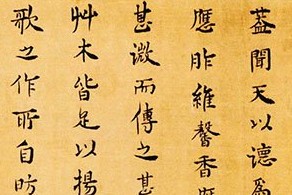 蓋聞天以德爲
應昨維馨香
甚微而傳之甚
艸木皆足以揚
歌之作所自昉